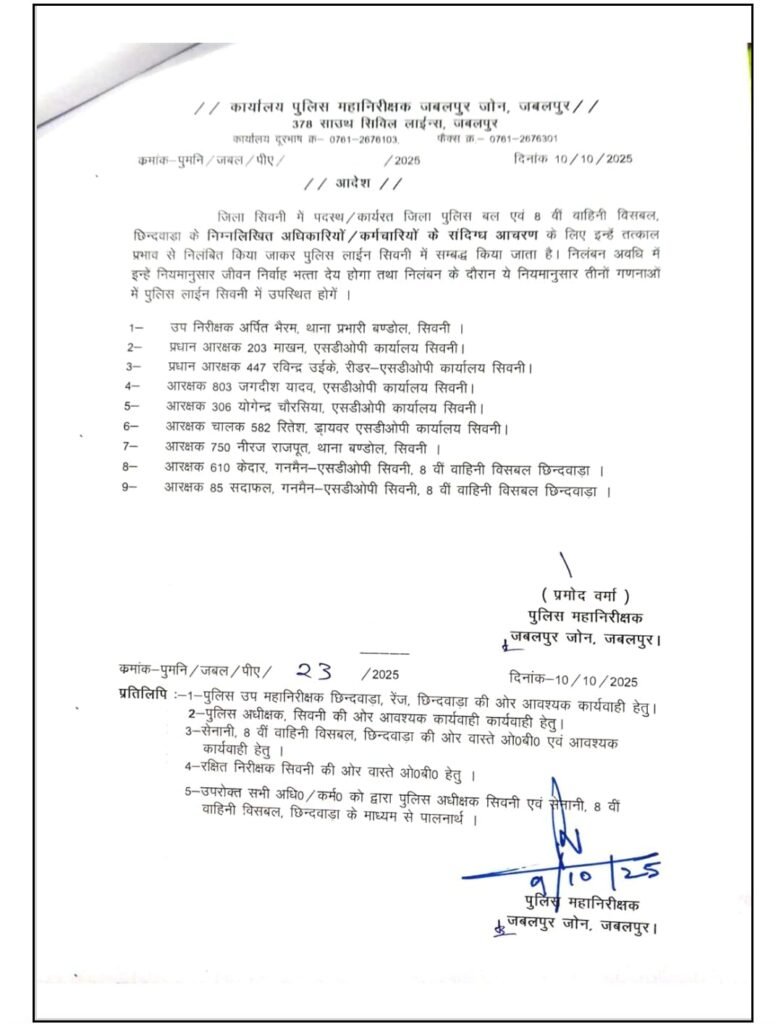 // कार्यालय पुलिस महानिरीक्षक जबलपुर जोन, जबलपुर//
378 साउथ सिविल लाईन्स, जबलपुर
कार्यालय दूरभाष क्र- 0761-2676103, फैक्स क्र- 0761-2676301
कमांक-पुमनि/जबल/पीए/ /2025 दिनांक 10/10/2025
// आदेश //
जिला सिवनी में पदस्थ/कार्यरत जिला पुलिस बल एवं 8 वीं वाहिनी विसबल,
छिन्दवाड़ा के निम्नलिखित अधिकारियों/कर्मचारियों के संदिग्ध आचरण के लिए इन्हें तत्काल
प्रभाव से निलंबित किया जाकर पुलिस लाईन सिवनी में सम्बद्ध किया जाता है। निलंबन अवधि में
इन्हें नियमानुसार जीवन निर्वाह भत्ता देय होगा तथा निलंबन के दौरान ये नियमानुसार तीनों गणनाओं
में पुलिस लाईन सिवनी में उपस्थित होगें ।
1- उप निरीक्षक अर्पित भैरम, थाना प्रभारी बण्डोल, सिवनी ।
2- प्रधान आरक्षक 203 माखन, एसडीओपी कार्यालय सिवनी।
3- प्रधान आरक्षक 447 रविन्द्र उईके, रीडर-एसडीओपी कार्यालय सिवनी।
4- आरक्षक 803 जगदीश यादव, एसडीओपी कार्यालय सिवनी।
5- आरक्षक 306 योगेन्द्र चौरसिया, एसडीओपी कार्यालय सिवनी।
6- आरक्षक चालक 582 रितेश, ड्रायवर एसडीओपी कार्यालय सिवनी।
7- आरक्षक 750 नीरज राजपूत, थाना बण्डोल, सिवनी ।
8- आरक्षक 610 केदार, गनमैन-एसडीओपी सिवनी, 8 वीं वाहिनी विसबल छिन्दवाड़ा ।
9- आरक्षक 85 सदाफल, गनमैन-एसडीओपी सिवनी, 8 वीं वाहिनी विसबल छिन्दवाड़ा ।
( प्रमोद वर्मा )
पुलिस महानिरीक्षक
जबलपुर जोन, जबलपुर।
कमांक-पुमनि/जबल/पीए/ 23 /2025 दिनांक-10/10/2025
प्रतिलिपि :-1-पुलिस उप महानिरीक्षक छिन्दवाड़ा, रेंज, छिन्दवाड़ा की ओर आवश्यक कार्यवाही हेतु।
2-पुलिस अधीक्षक, सिवनी की ओर आवश्यक कार्यवाही कार्यवाही हेतु।
3-सेनानी, 8 वीं वाहिनी विसबल, छिन्दवाड़ा की ओर वास्ते ओ0बी0 एवं आवश्यक
कार्यवाही हेतु ।
4-रक्षित निरीक्षक सिवनी की ओर वास्ते ओ0बी0 हेतु ।
5-उपरोक्त सभी अधि0/कर्म0 को द्वारा पुलिस अधीक्षक सिवनी एवं सेनानी, 8 वीं
वाहिनी विसबल, छिन्दवाड़ा के माध्यम से पालनार्थ ।
9/10/25
पुलिस महानिरीक्षक
जबलपुर जोन, जबलपुर।